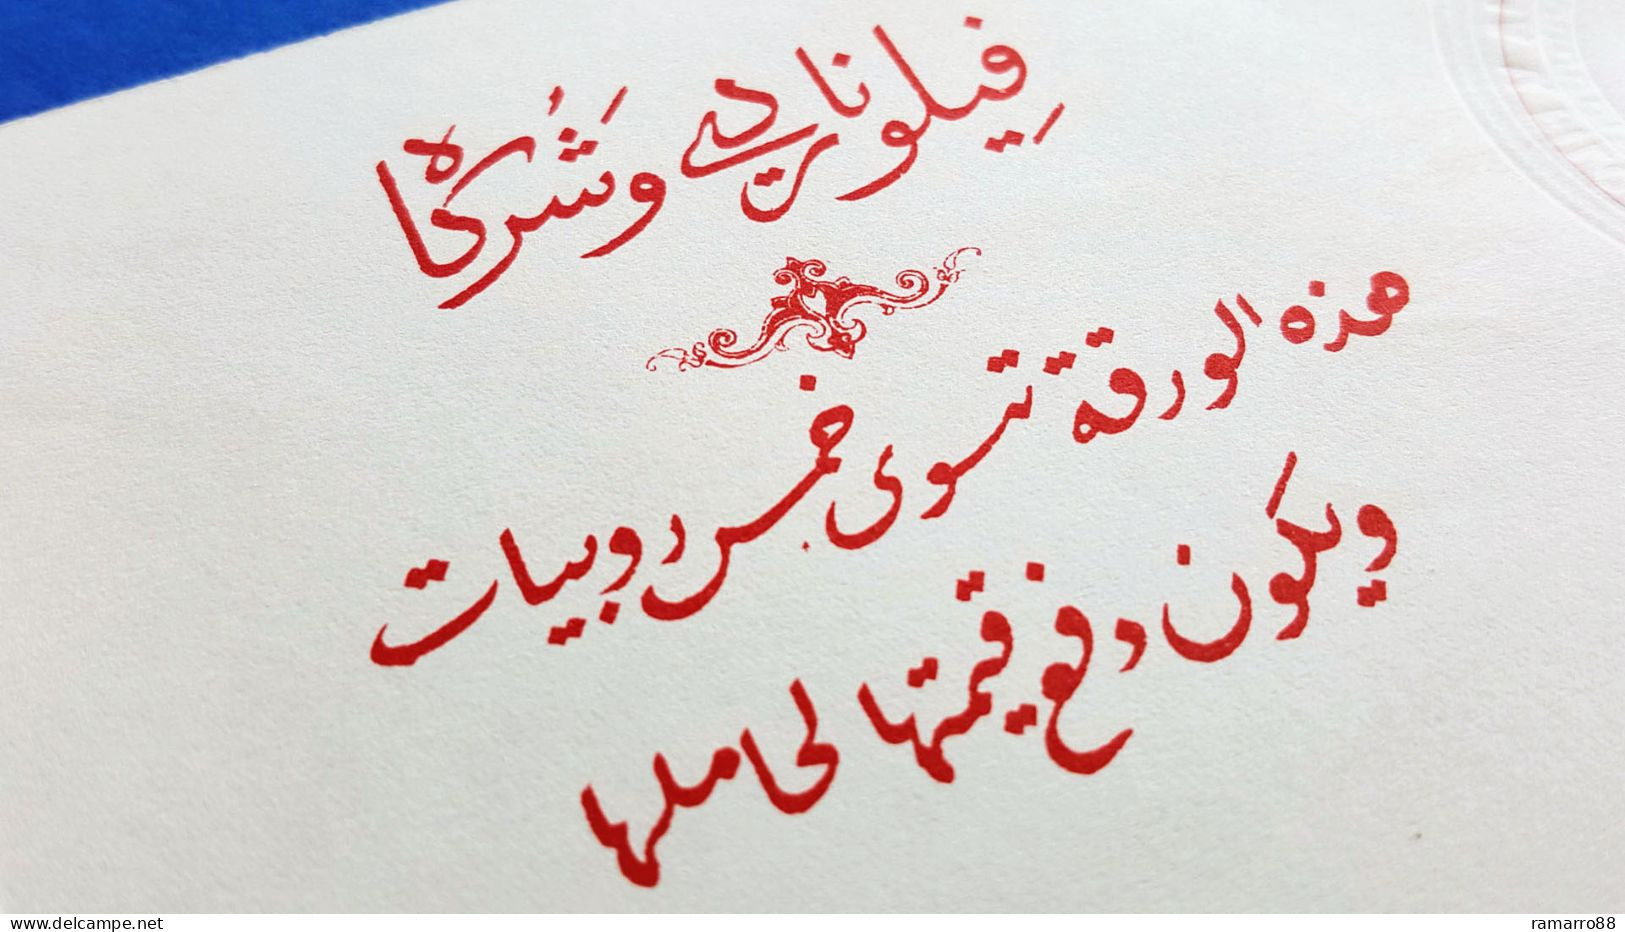 فِيلوناردي وَشُركاه
هذه الورقة تسوى خمس روبيات
ويكون دفع قيمتها لحاملها
www.delcampe.net
ramarro88